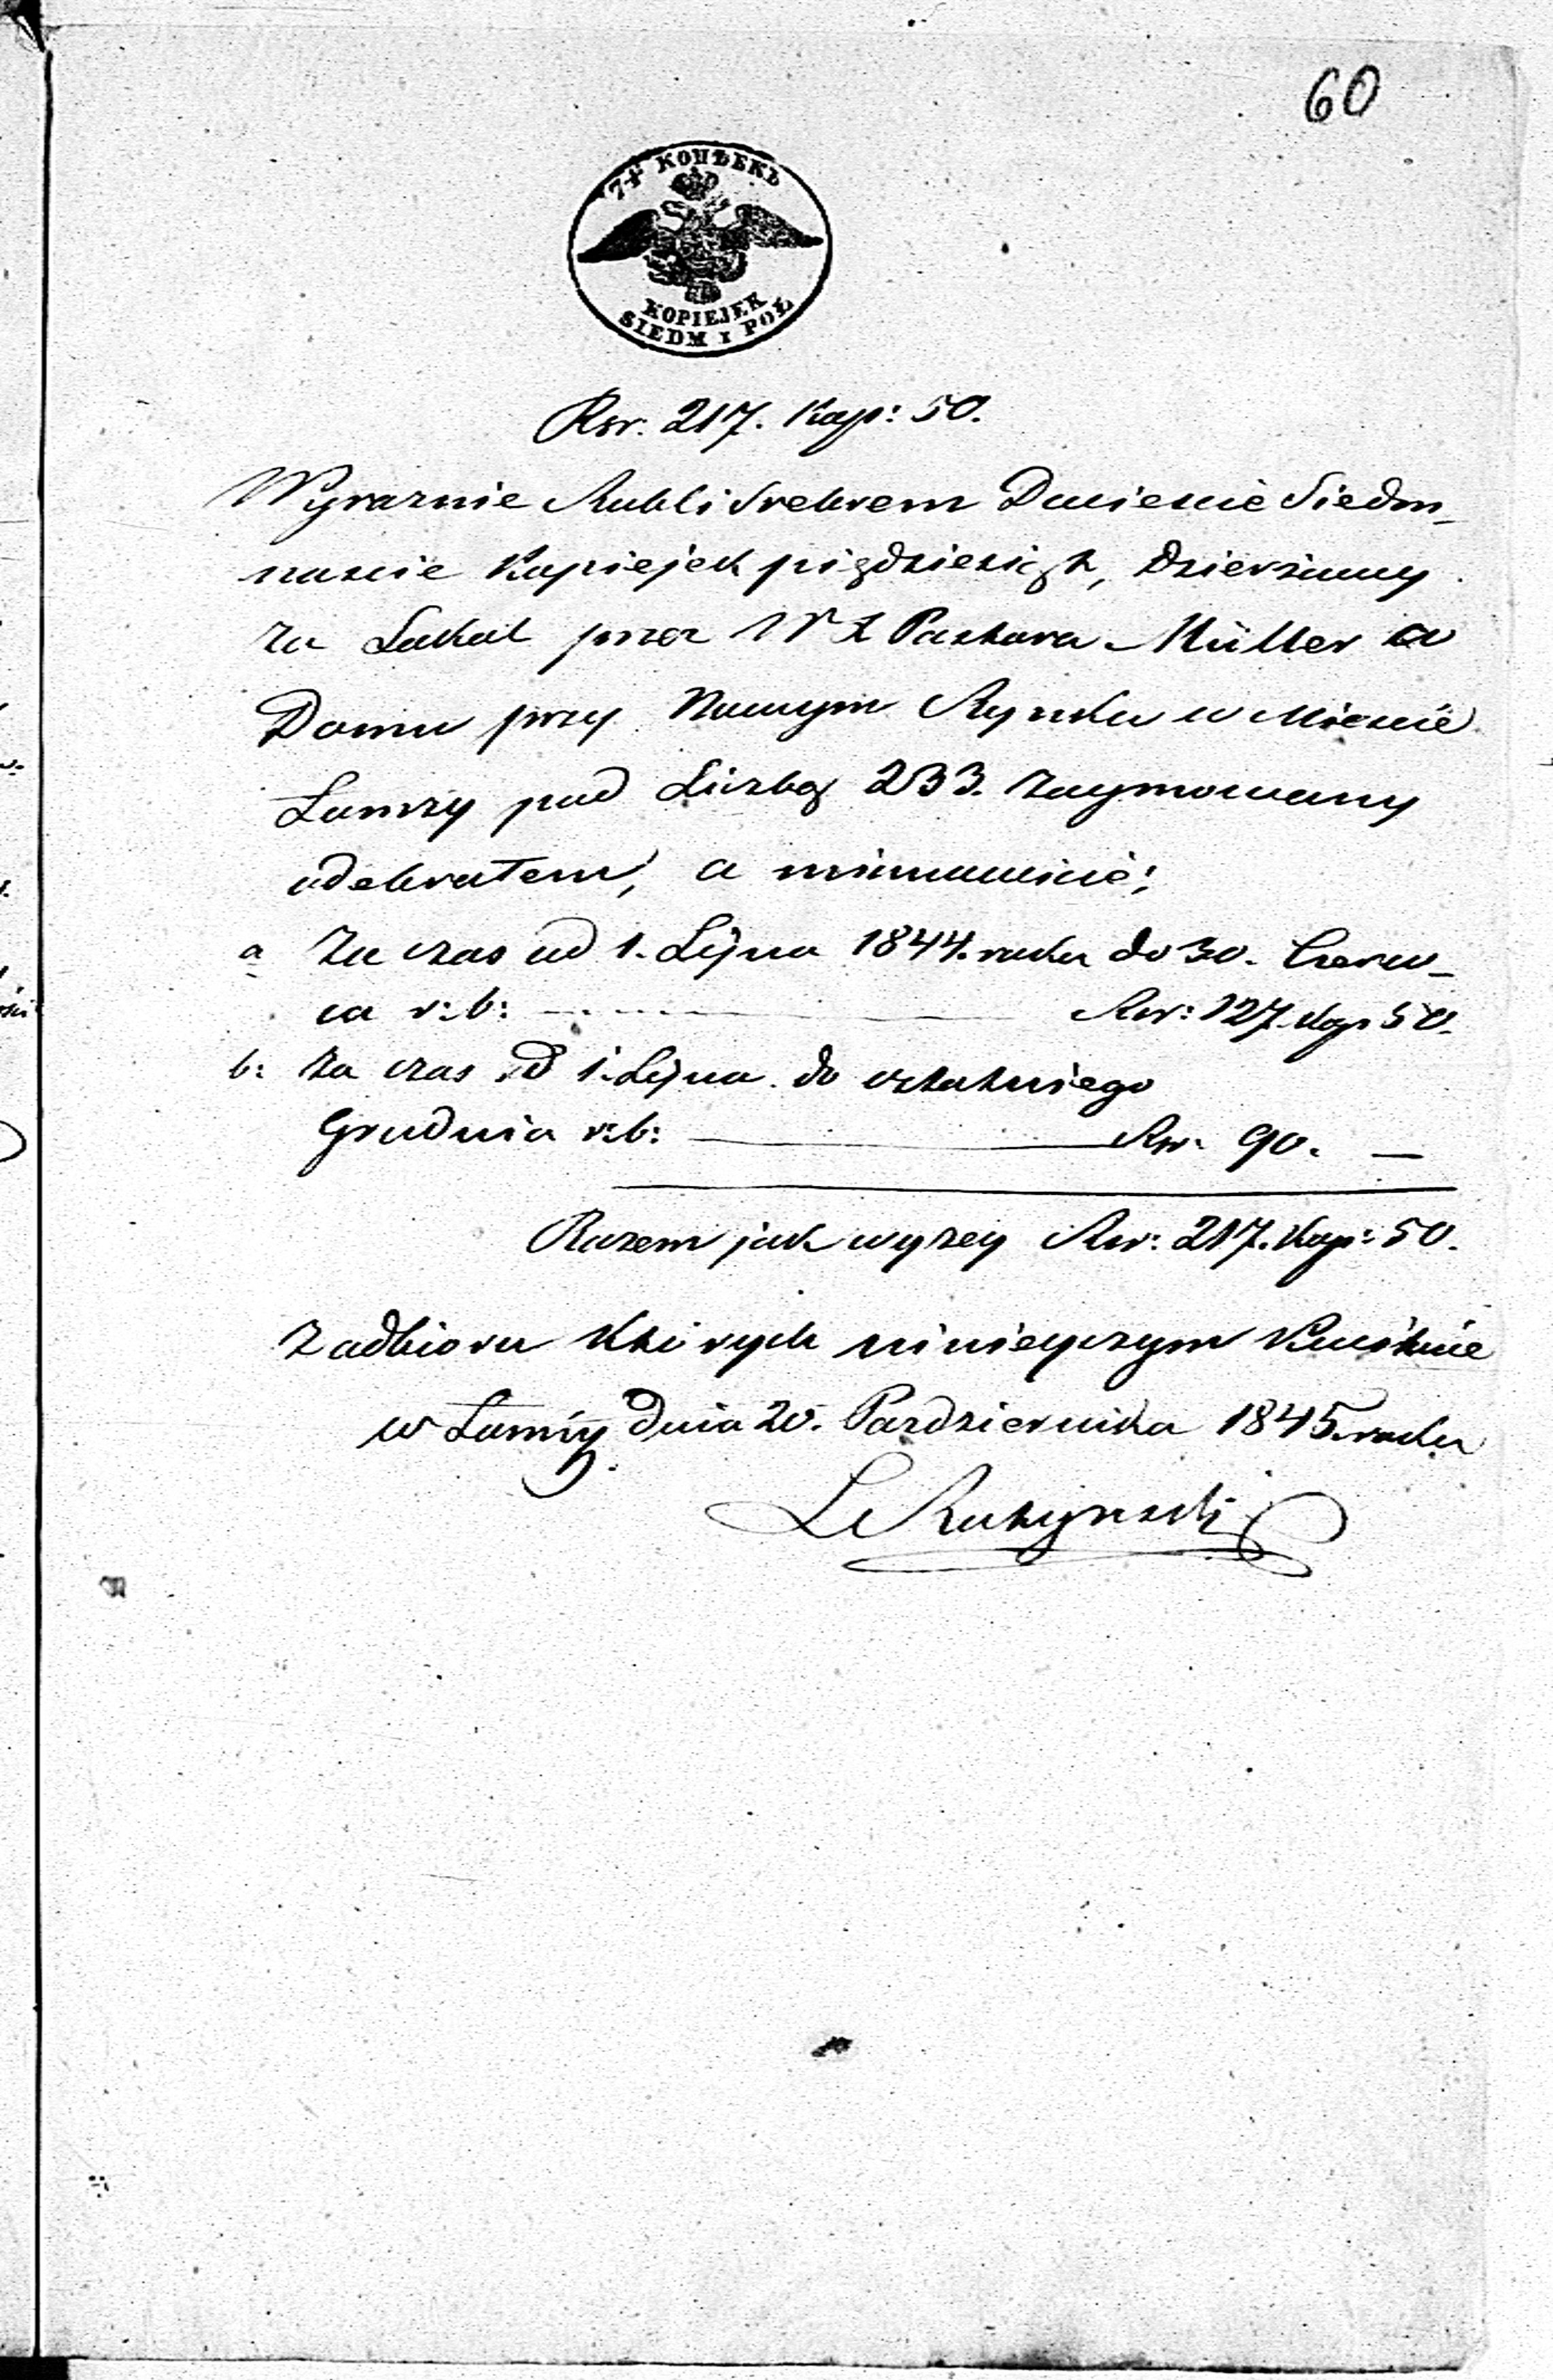 60
7½ КОПѢЕКЪ
KOPIEJEK
SIEDM I POŁ
Rsr. 217. Kop: 50.
Wyraznie Rubli Srebrem Dwiescie Siedm-
nascie Kopiejek piędziesiąt, Dzierżawy
za Lokal przez Pastora Müller w
Domu przy Nowym Rynku w Miescie
Łomzy pod Liczbą 233. zaymowany
odebrałem, a mianowicie;
a za czas od 1. Lipca 1844. roku do 30. Czerw-
ca r: b: Rsr: 127. kop 50.
b: za czas od 1. Lipca do ostatniego
Grudnia r: b: Rsr. 90. —
Razem jak wyzey Rsr: 217. Kop: 50.
Z odbioru których ninieyszym Kwituie
w Łomży dnia 20. Pazdziernika 1845. roku